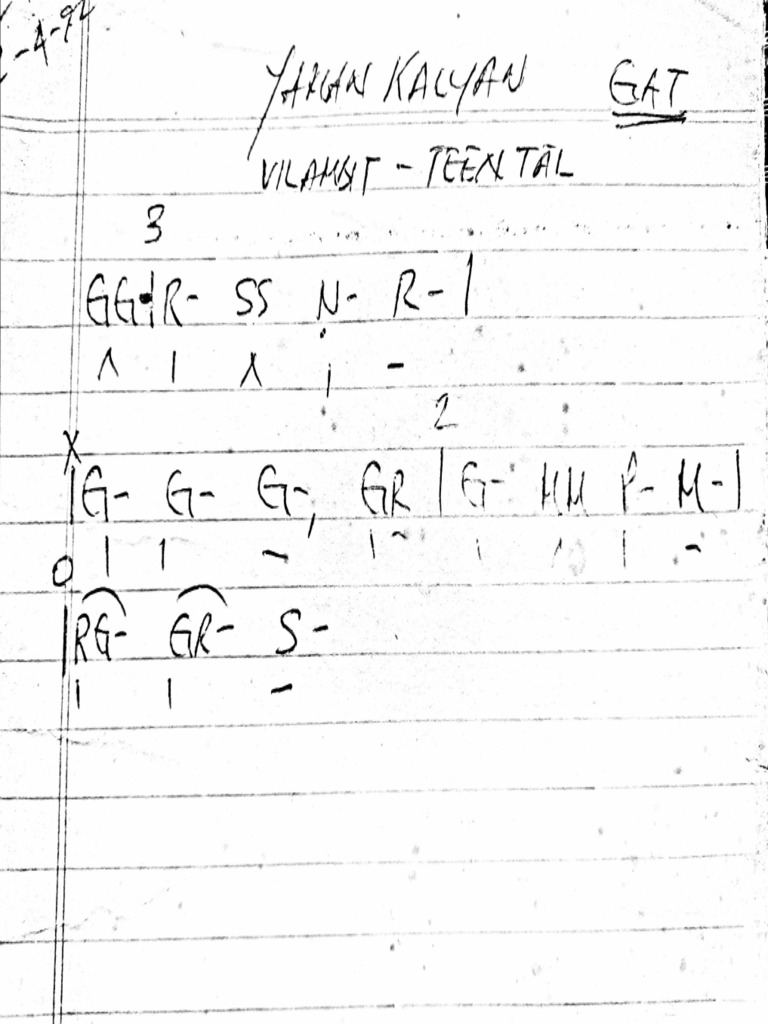 -4-92
YAMAN KALYAN GAT
VILAMBIT - TEEN TAL
3
GG R- SS Ṇ- R-|
∧ | ∧ | -
X 2
|G- G- G-, GR | G- MM P- M-|
| | - | - | ∧ | -
0
|RG- GR- S-
| | -